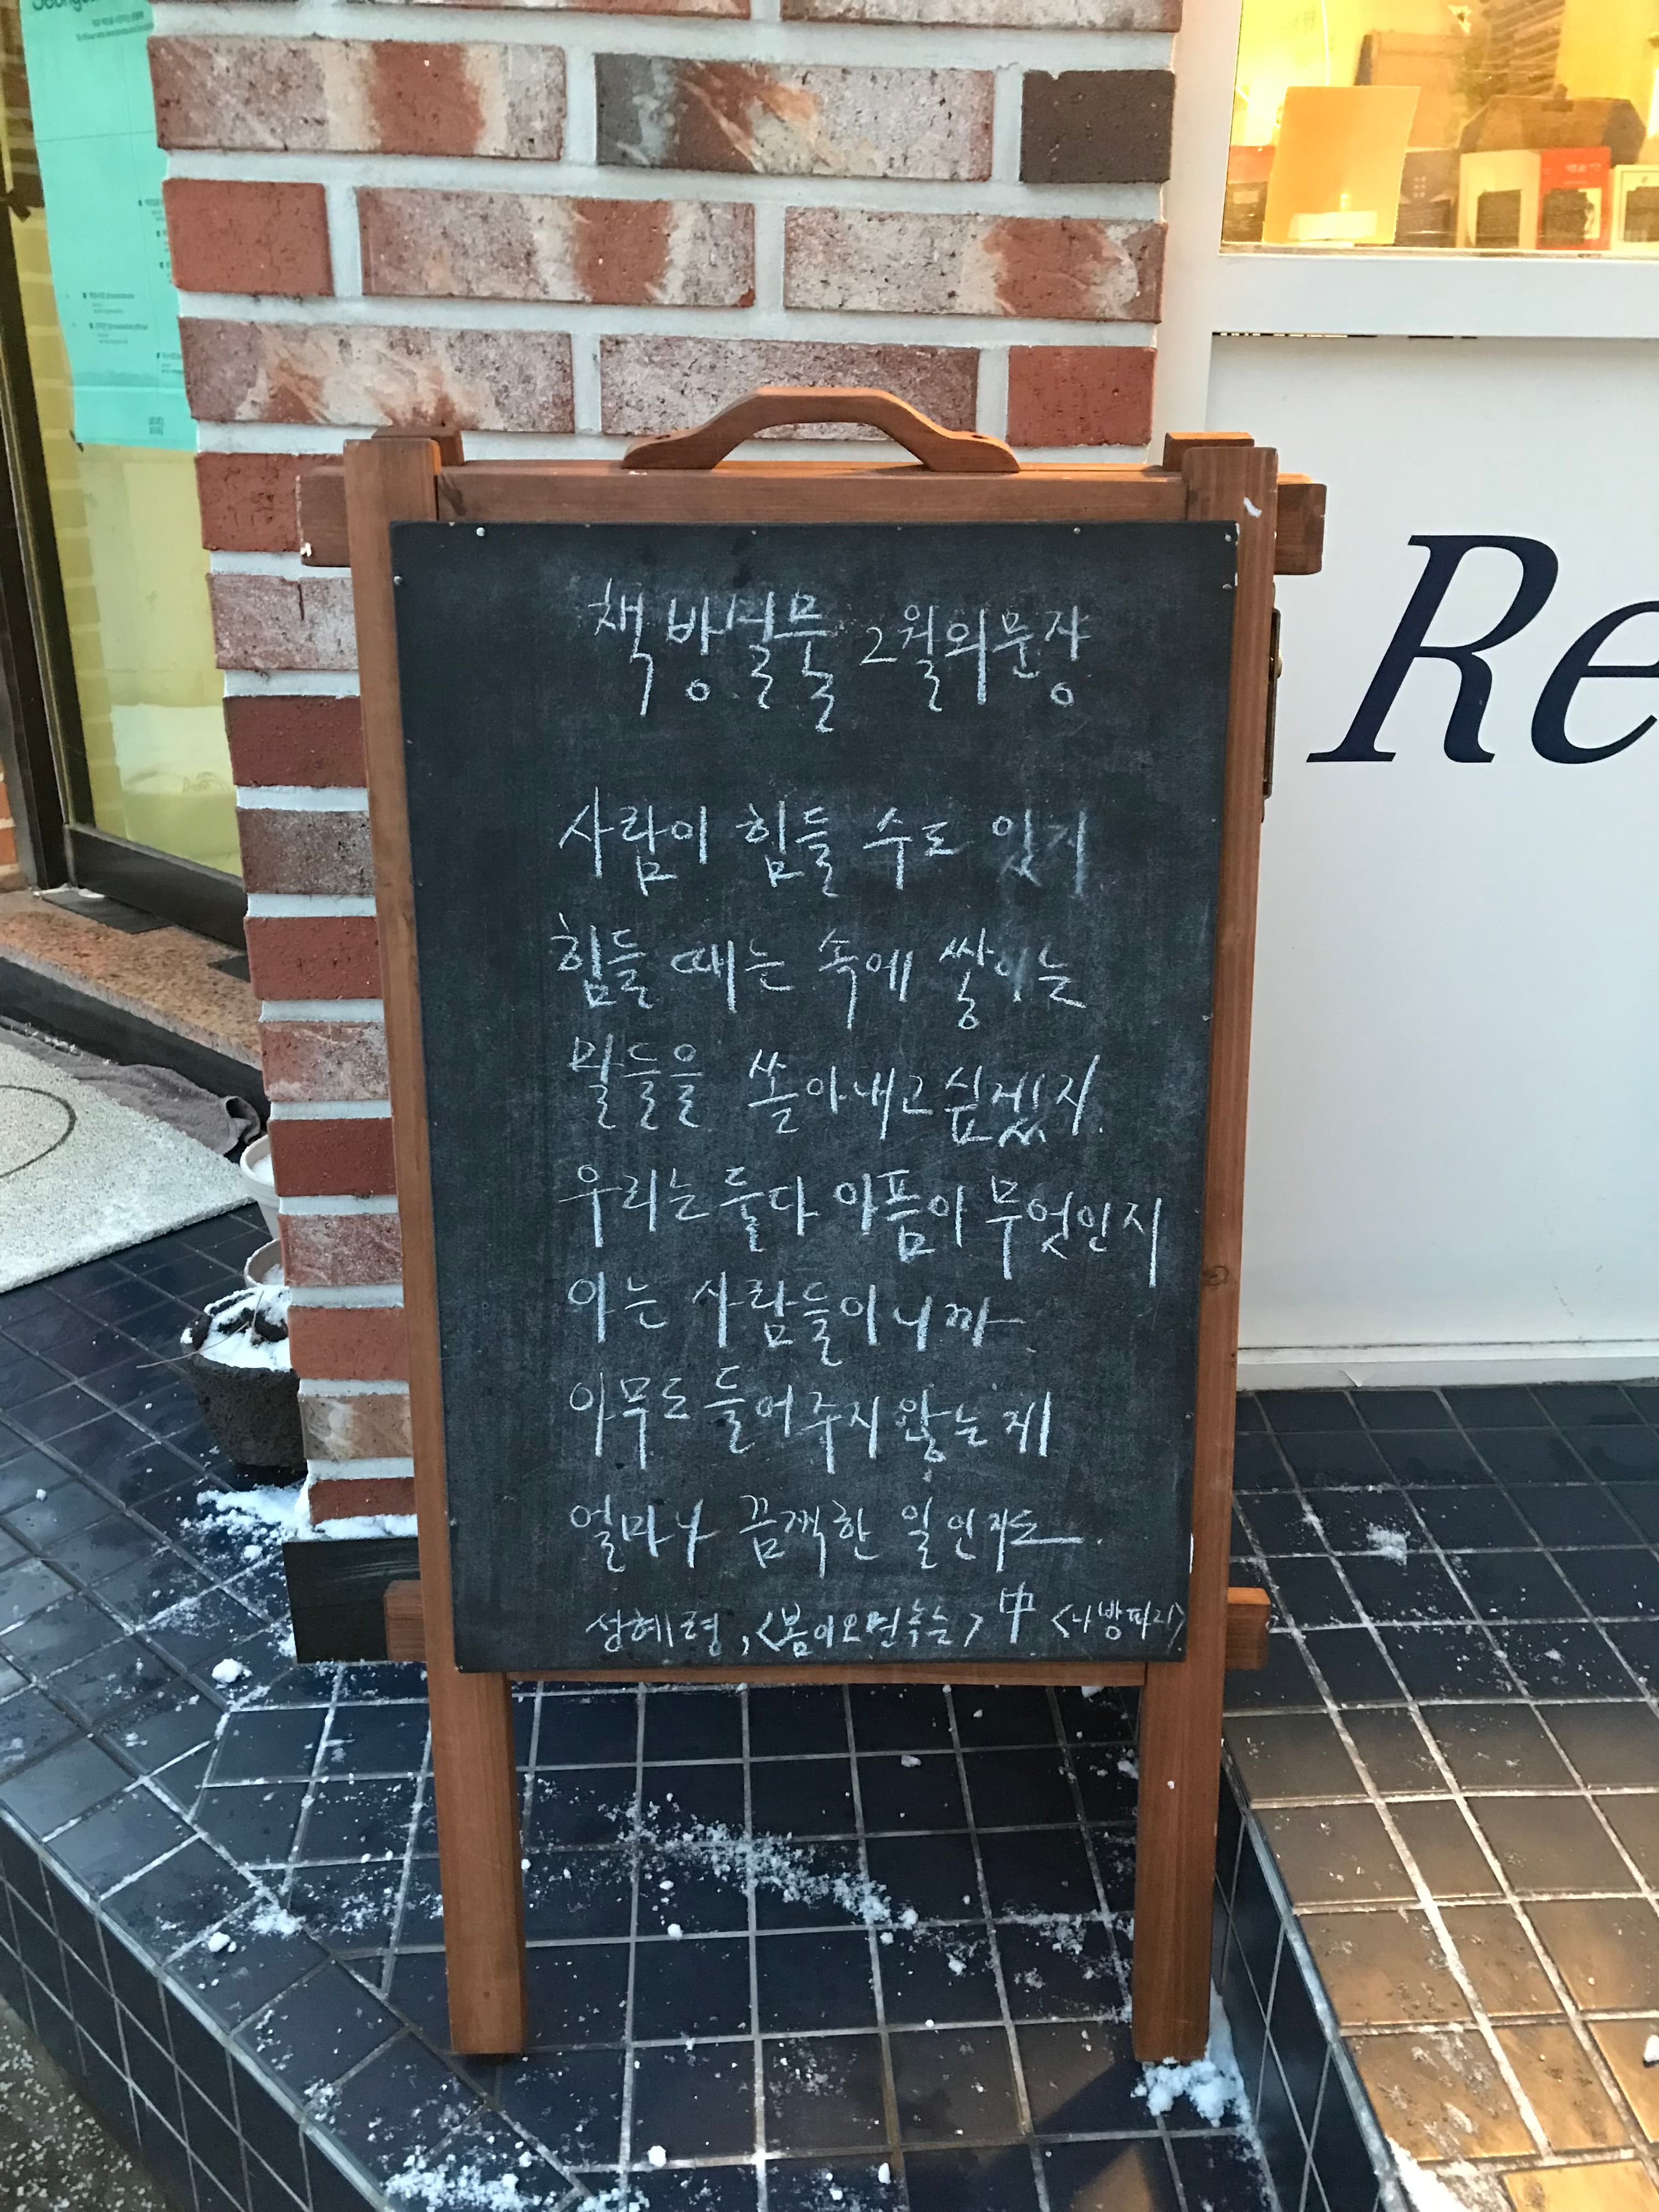 책방썰물 2월의문장
사람이 힘들 수도 있지
힘들 때는 속에 쌓이는
말들을 쏟아내고 싶겠지.
우리는 둘다 아픔이 무엇인지
아는 사람들이니까.
아무도 들어주지 않는게
얼마나 끔찍한 일인지도.
성혜령, <봄이오면녹는> 中 <나방파리>
Re